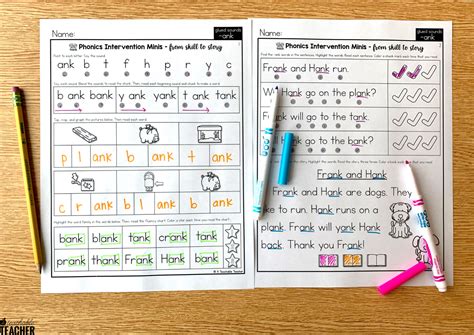 Name:
glued sounds
-ank
Phonics Intervention Minis - from skill to story
ank b t f h p r y c
b ank bank y ank yank t ank tank
Tap, map, and graph the pictures below. Then read each word.
p l ank b ank t ank
c r ank b l ank b ank
bank blank tank crank thank
prank Frank Hank yank plank
© A Teachable Teacher
Name:
glued sounds
-ank
Phonics Intervention Minis - from skill to story
Frank and Hank run.
Will Hank go on the plank?
Frank will go to the tank.
Will Hank go to the bank?
Frank and Hank
Frank and Hank are dogs. They
like to run. Hank runs on a
plank. Frank will yank Hank
back. Thank you Frank!
teachable
TEACHER